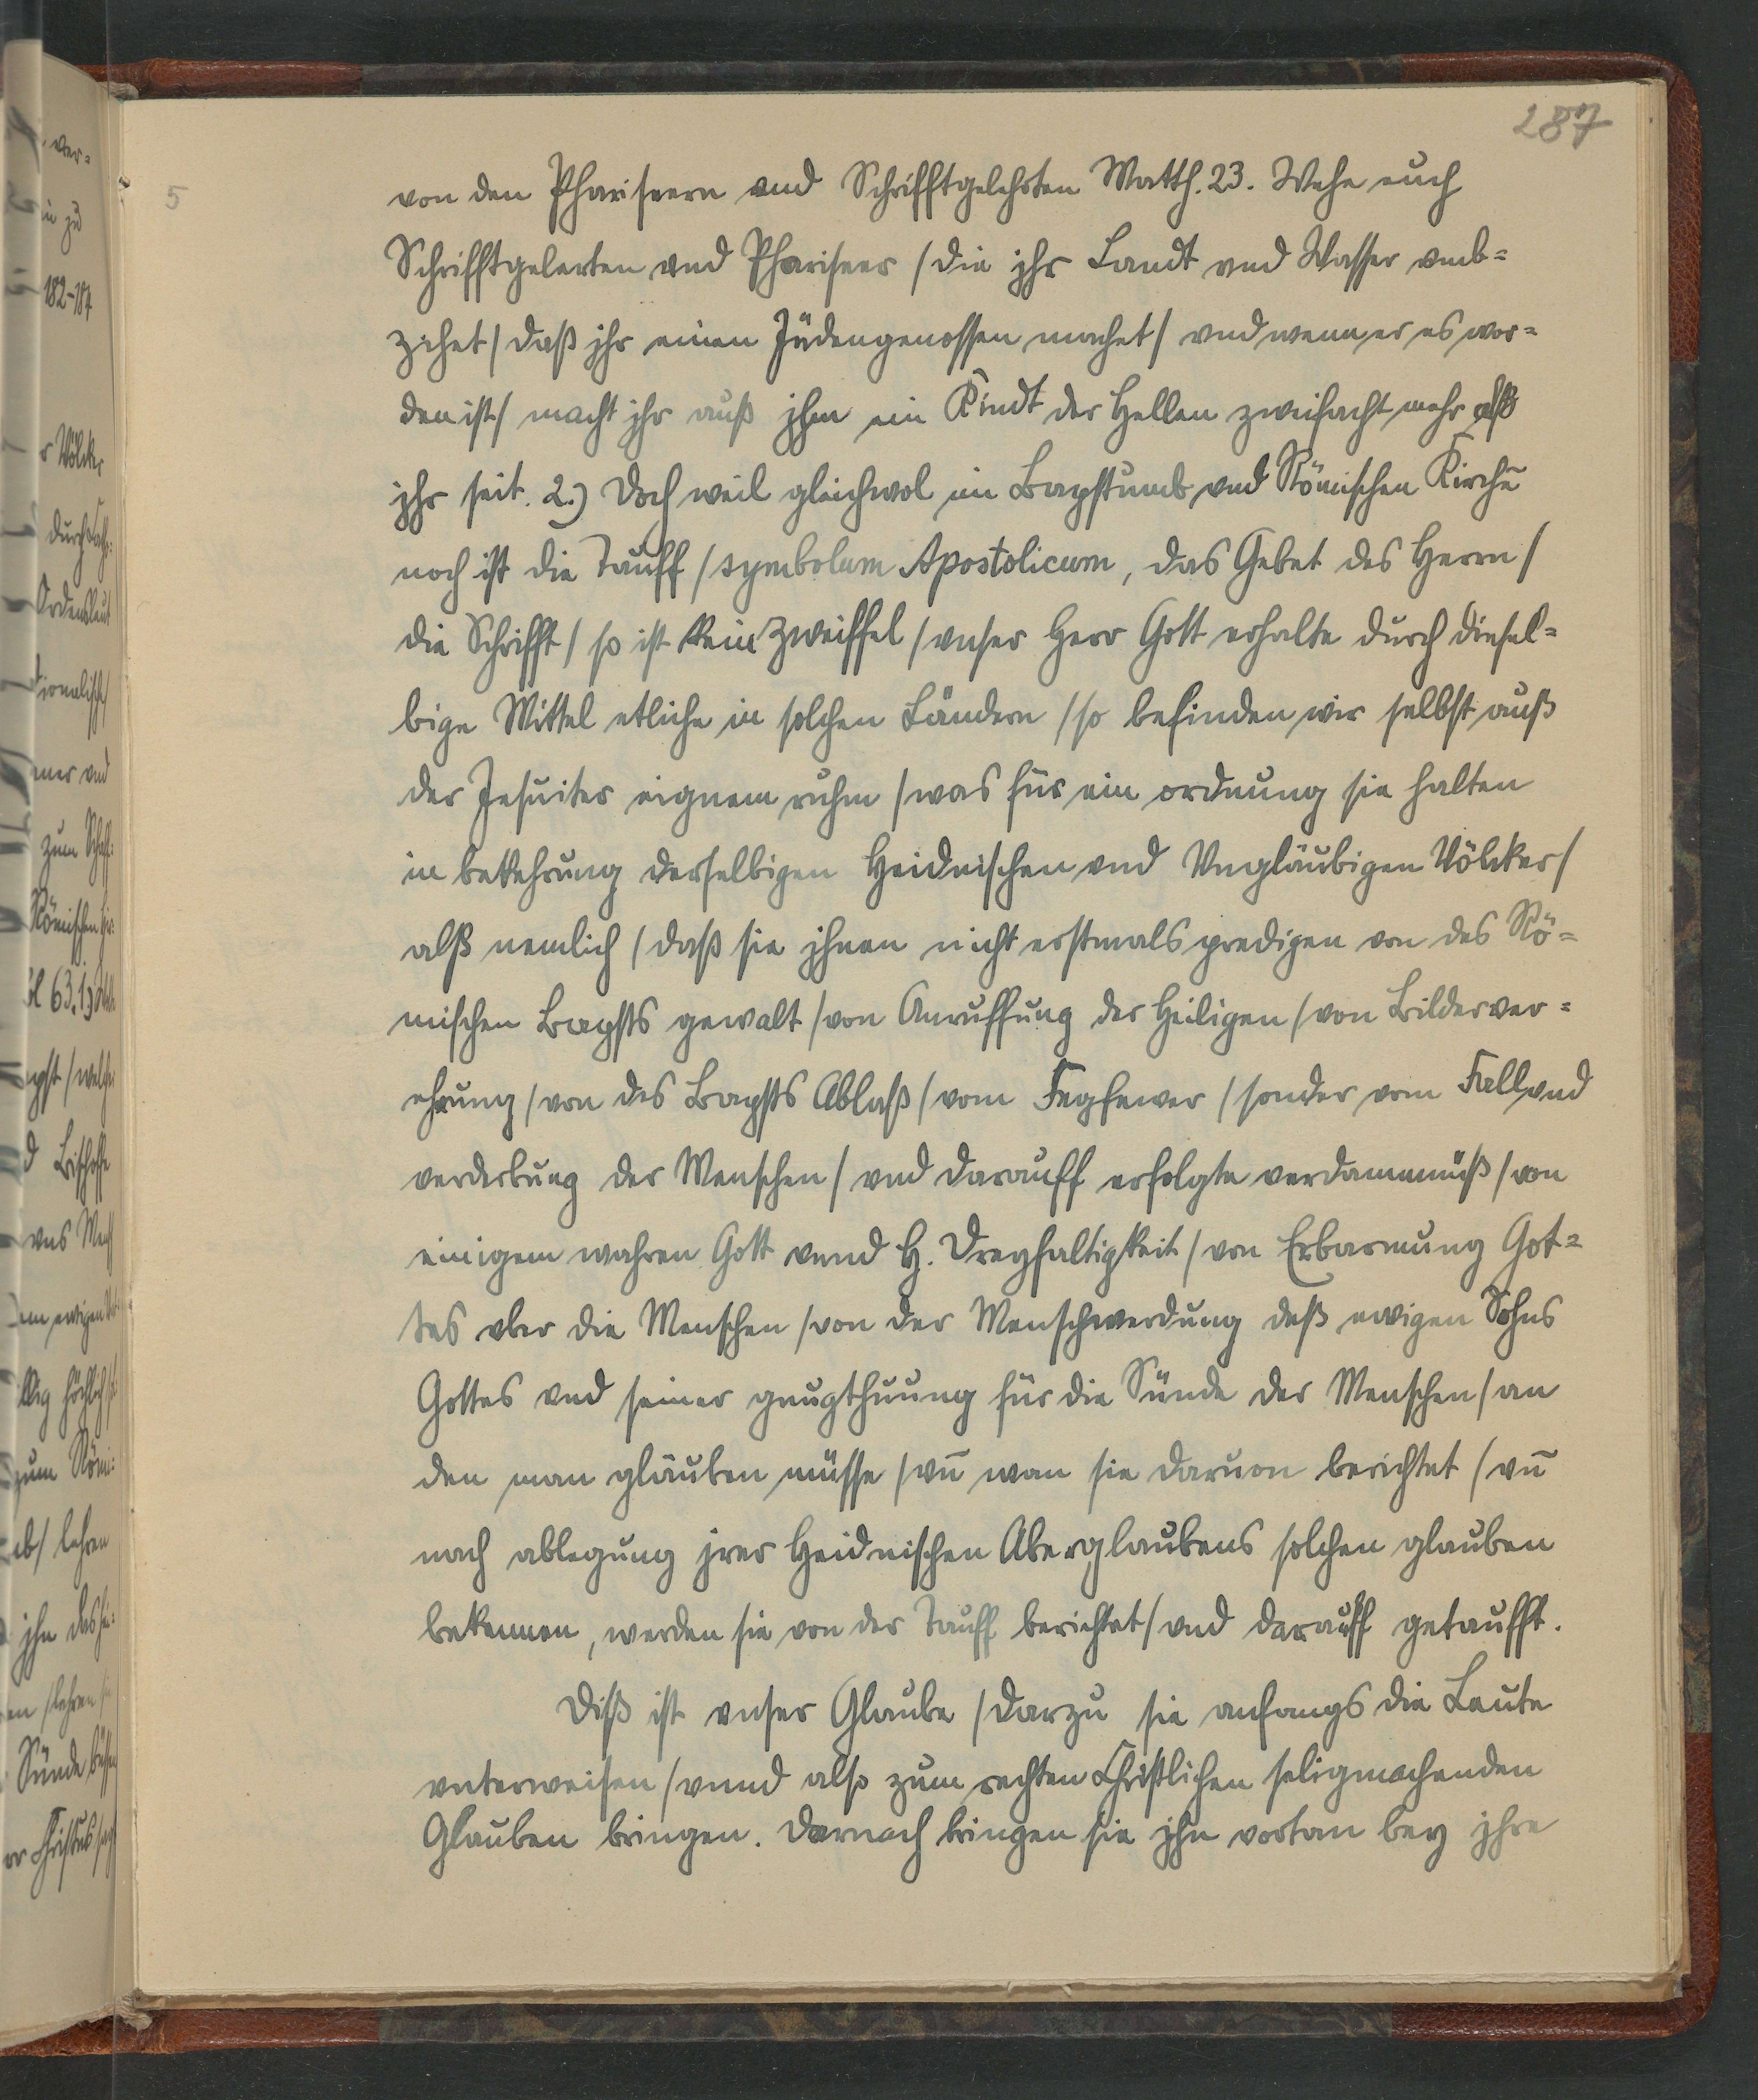 287
5
von den Phariseern vnd Schrifftgelehrten Matth. 23. Wehe euch
Schrifftgelerten vnd Phariseer / die jhr Landt vnd Wasser vmb=
zihet / daß jhr einen Jüdengenossen machet / vnd wenn er es wor=
den ist / macht jhr auß jhm ein Kindt der Hellen zweifacht mehr alß
jhr seit. 2.) Doch weil gleichwol im Bapstumb vnd Römischen Kirchē
noch ist die Tauff / symbolum Apostolicum, das Gebet des Herrn /
die Schrifft / so ist kein Zweiffel / vnser Herr Gott erhalte durch diesel=
bige Mittel etliche in solchen Ländern / so befinden wir selbst auß
der Jesuiter eignem ruhm / was für ein ordnung sie halten
in bekehrung derselbigen Heidnischen vnd Vngläubigen Völcker /
alß nemlich / daß sie jhnen nicht erstmals predigen von des Rö=
mischen Bapsts gewalt / von Anruffung der Heiligen / von Bilderver=
ehrung / von des Bapsts Ablaß / vom Fegfewer / sonder vom Fall vnd
verderbung der Menschen / vnd darauff erfolgte verdammnüß / von
einigem wahren Gott vnnd H. Dreyfaltigkeit / von Erbarmung Got=
tes vber die Menschen / von der Menschwerdung deß ewigen Sohns
Gottes vnd seiner gnugthuung für die Sünde der Menschen / an
den man gläuben müsse / vn̄ wan sie daruon berichtet / vn̄
nach ablegung jrer Heidnischen Aberglaubens solchen glauben
bekennen, werden sie von der Tauff berichtet / vnd darauff getaufft.
Diß ist vnser Glaube / darzu sie anfangs die Leute
vnterweisen / vnnd also zum rechten Christlichen seligmachenden
Glauben bringen. Darnach bringen sie jhn vortan bey jhre